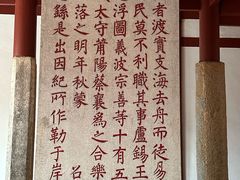 者渡實支海去舟而徒易
民莫不利職其事盧錫王
浮圖義波宗善等十有五
太守莆陽蔡襄為之合樂
落之明年秋蒙
繇是出因紀所作勒于岸